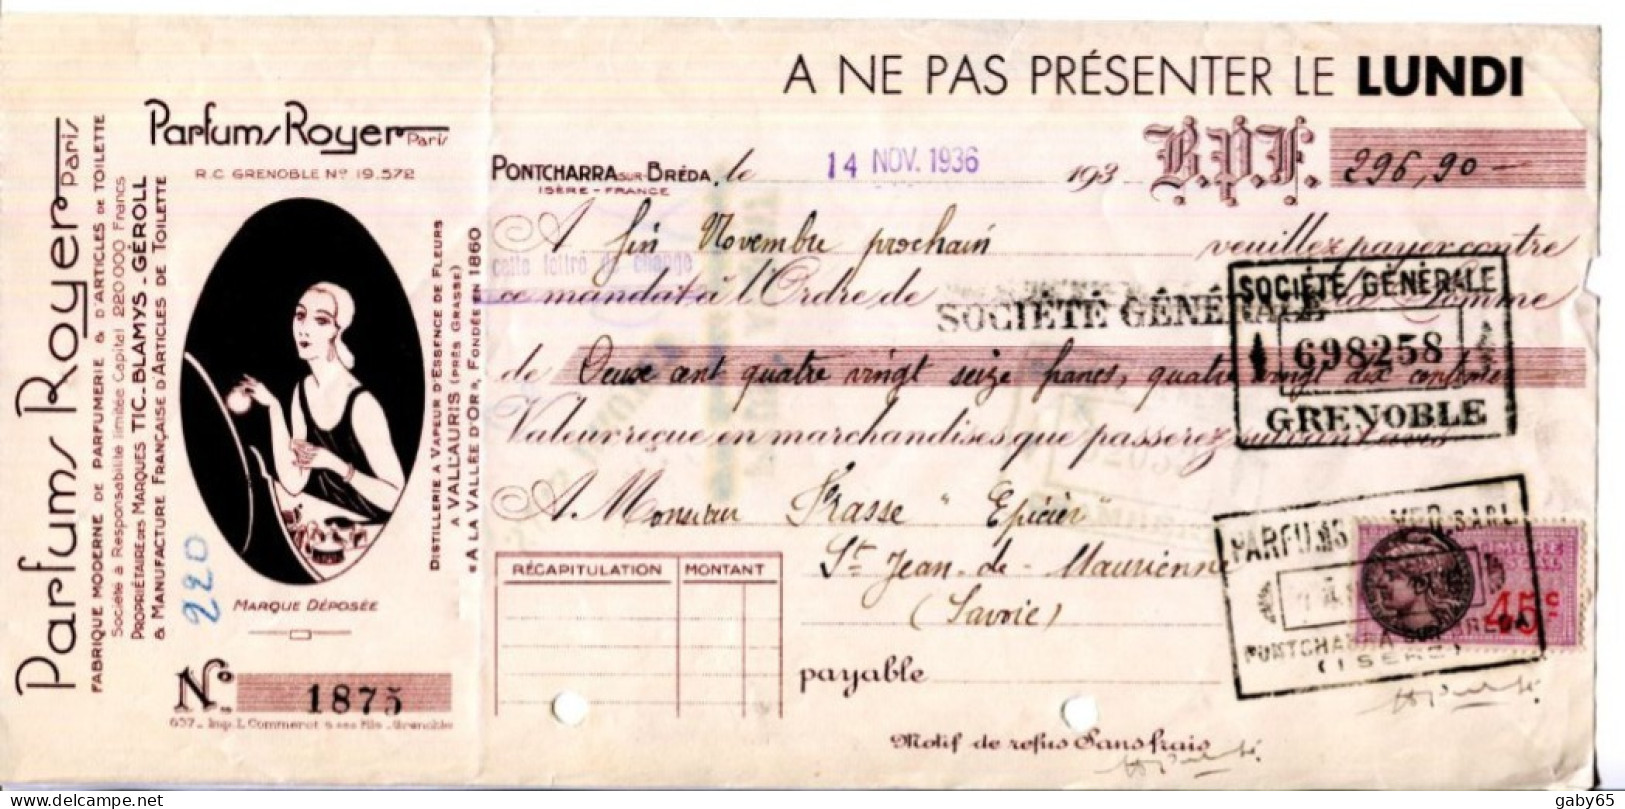 A NE PAS PRÉSENTER LE LUNDI
Parfums Royer Paris
FABRIQUE MODERNE DE PARFUMERIE & D'ARTICLES DE TOILETTE
Société à Responsabilité limitée Capital 220.000 Francs
PROPRIÉTAIRE DES MARQUES TIC_BLAMYS_GÉROLL
& MANUFACTURE FRANÇAISE D'ARTICLES DE TOILETTE
Parfums Royer Paris
R.C. GRENOBLE Nº 19.572
MARQUE DÉPOSÉE
220
Nº 1875
657_ Imp. L. Commerot & ses Fils _ Grenoble
DISTILLERIE A VAPEUR D'ESSENCE DE FLEURS
A VALLAURIS (PRÈS GRASSE)
« A LA VALLÉE D'OR », FONDÉE EN 1860
PONTCHARRA SUR BRÉDA, le 14 NOV. 1936 193 B.P.F. 296,90 -
ISÈRE - FRANCE
A fin Novembre prochain veuillez payer contre
cette lettre de change
ce mandat à l'Ordre de SOCIÉTÉ GÉNÉRALE la Somme
de Deux cent quatre vingt seize francs, quatre vingt dix centimes
Valeur reçue en marchandises que passerez suivant avis
SOCIÉTÉ GÉNÉRALE
698258
GRENOBLE
A Monsieur Frasse "Epicier"
St Jean-de-Maurienne
(Savoie)
RÉCAPITULATION MONTANT
payable
PARFUMS ROYER S.A.R.L
PONTCHARRA-SUR-BREDA
(ISÈRE)
45c
Motif de refus Sans frais
gaby65